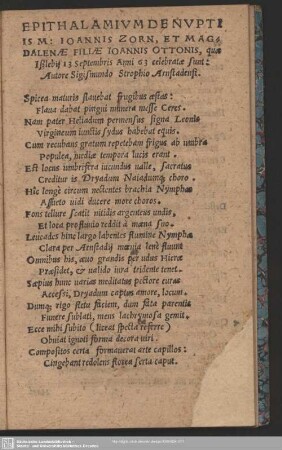 EPITHALAMIVM DE NVPTI
IS M: IOANNIS ZORN, ET MAG⸗
DALENÆ FILIÆ IOANNIS OTTONIS, quæ
Islebij 13 Septembris Anni 63 celebratæ sunt:
Autore Sigismundo Strophio Arnstadensi.
Spicea maturis flauebat frugibus æstas:
Flaua dabat pingui munera messe Ceres.
Nam pater Heliadum permensus signa Leonis
Virgineum iunctis sydus habebat equis.
Cum recubans gratum repetebam frigus ab vmbra
Populea, medio tempora lucis erant.
Est locus vmbrifera iucundus valle, sacratus
Creditur is Dryadum Naiadumq; choro.
Hîc longè circum nectentes brachia Nymphæ
Assueto vidi ducere more choros.
Fons tellure scatit nitidis argenteus vndis,
Et loca profluuio reddit amœna suo.
Leucades hinc largo labentes flumine Nymphæ
Clara per Arnstadij mœnia lenè fluunt
Omnibus his, auo grandis
Præsidet, & valido iura tridente tenet.
Sæpius hunc varias meditatus pectore curas
Accessi, Dryadum captus amore, locum.
Dumq; rigo fletu faciem, dum fata parentis
Funere sublati, mens lachrymosa gemit.
Ecce mihi subitò (liceat spectata referre)
Obuiat ignoti forma decora viri.
Compositos certa formauerat arte capillos:
Cingebant redolens florea serta caput.